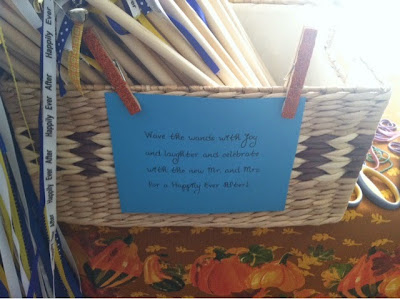 Wave the wands with Joy
and laughter and celebrate
with the new Mr. and Mrs
for a Happily Ever After!
Happily Ever After
Happily Ever After
Happily Ever After